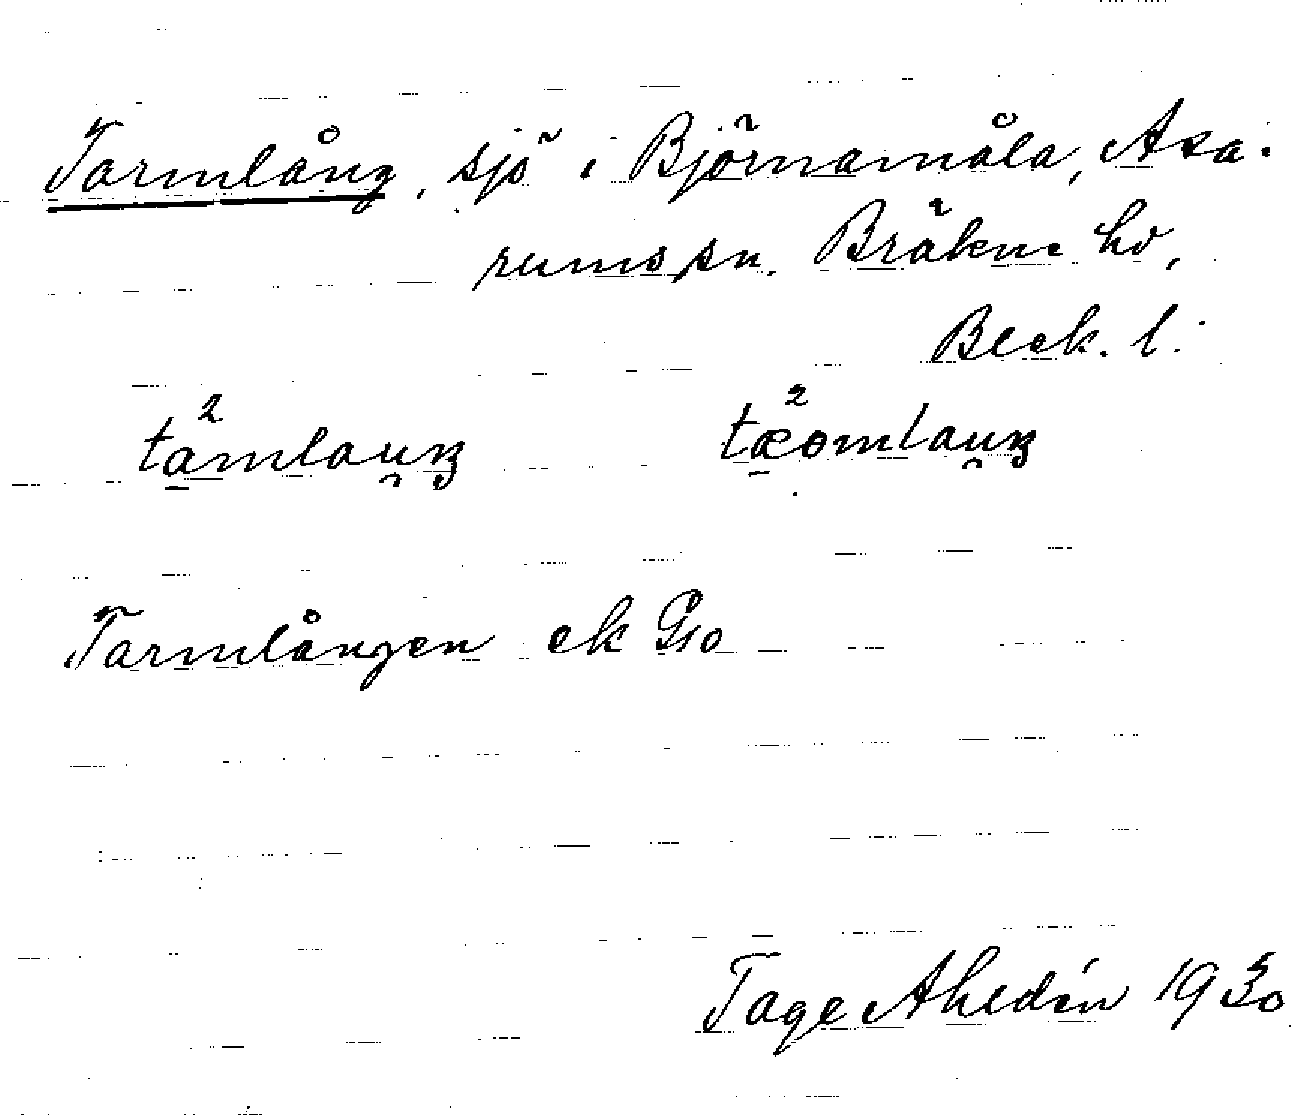 Tarmlång, sjö i Björnamåla, Asa-
rums sn. Bräkne hd,
Bleck. l.
ta²mlau̯ŋ tæ²ɵmlau̯ŋ
Tarmlången ek G10
Tage Ahldén 1930